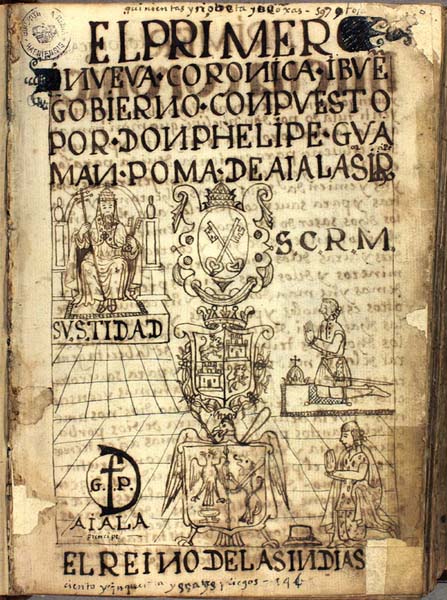 quinientas y nobenta y hoxas - 597
EL PRIMER
NVEVA·CORONICA·IBVE
GOBIERNO·CONPVESTO
POR·DON PHELIPE·GVA
MAN·POMA·DE AIALA S IR
S.C.R.M.
SV.S.TIDAD
G. P.
AIALA
principe
EL REINO DE LAS INDIAS
ciento y y seys pliegos - 146